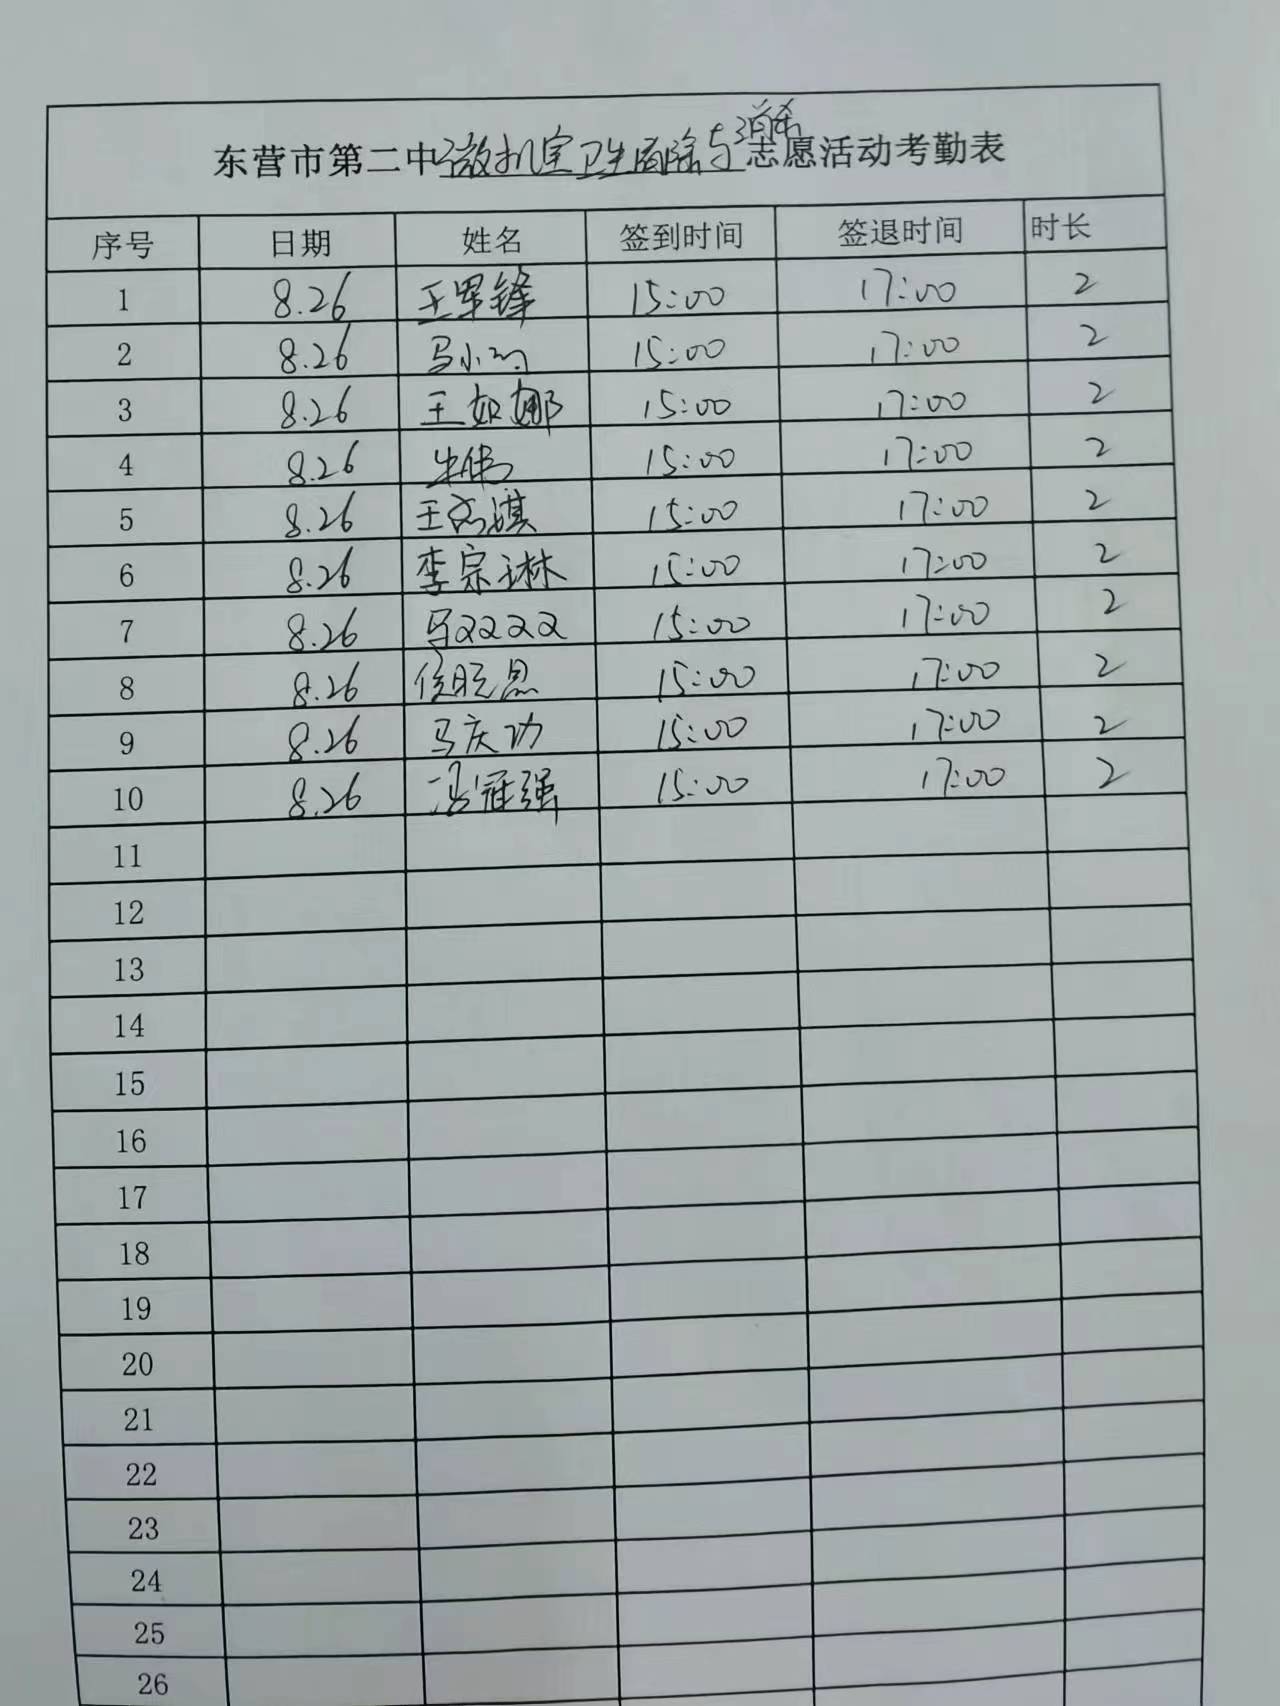 东营市第二中微机室卫生消除与消杀志愿活动考勤表
序号 日期 姓名 签到时间 签退时间 时长
1 8.26 王军锋 15:00 17:00 2
2 8.26 马小 15:00 17:00 2
3 8.26 王如娜 15:00 17:00 2
4 8.26 朱伟 15:00 17:00 2
5 8.26 王淇 15:00 17:00 2
6 8.26 李宗琳 15:00 17:00 2
7 8.26 马双双 15:00 17:00 2
8 8.26 侯晓恩 15:00 17:00 2
9 8.26 马庆功 15:00 17:00 2
10 8.26 冯冠强 15:00 17:00 2
11
12
13
14
15
16
17
18
19
20
21
22
23
24
25
26